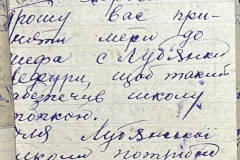 Прошу вас при-
няти мери до
шефа с Лубянки
щоб такий
забезпечив школу
Для Лубянської
школи потрібно